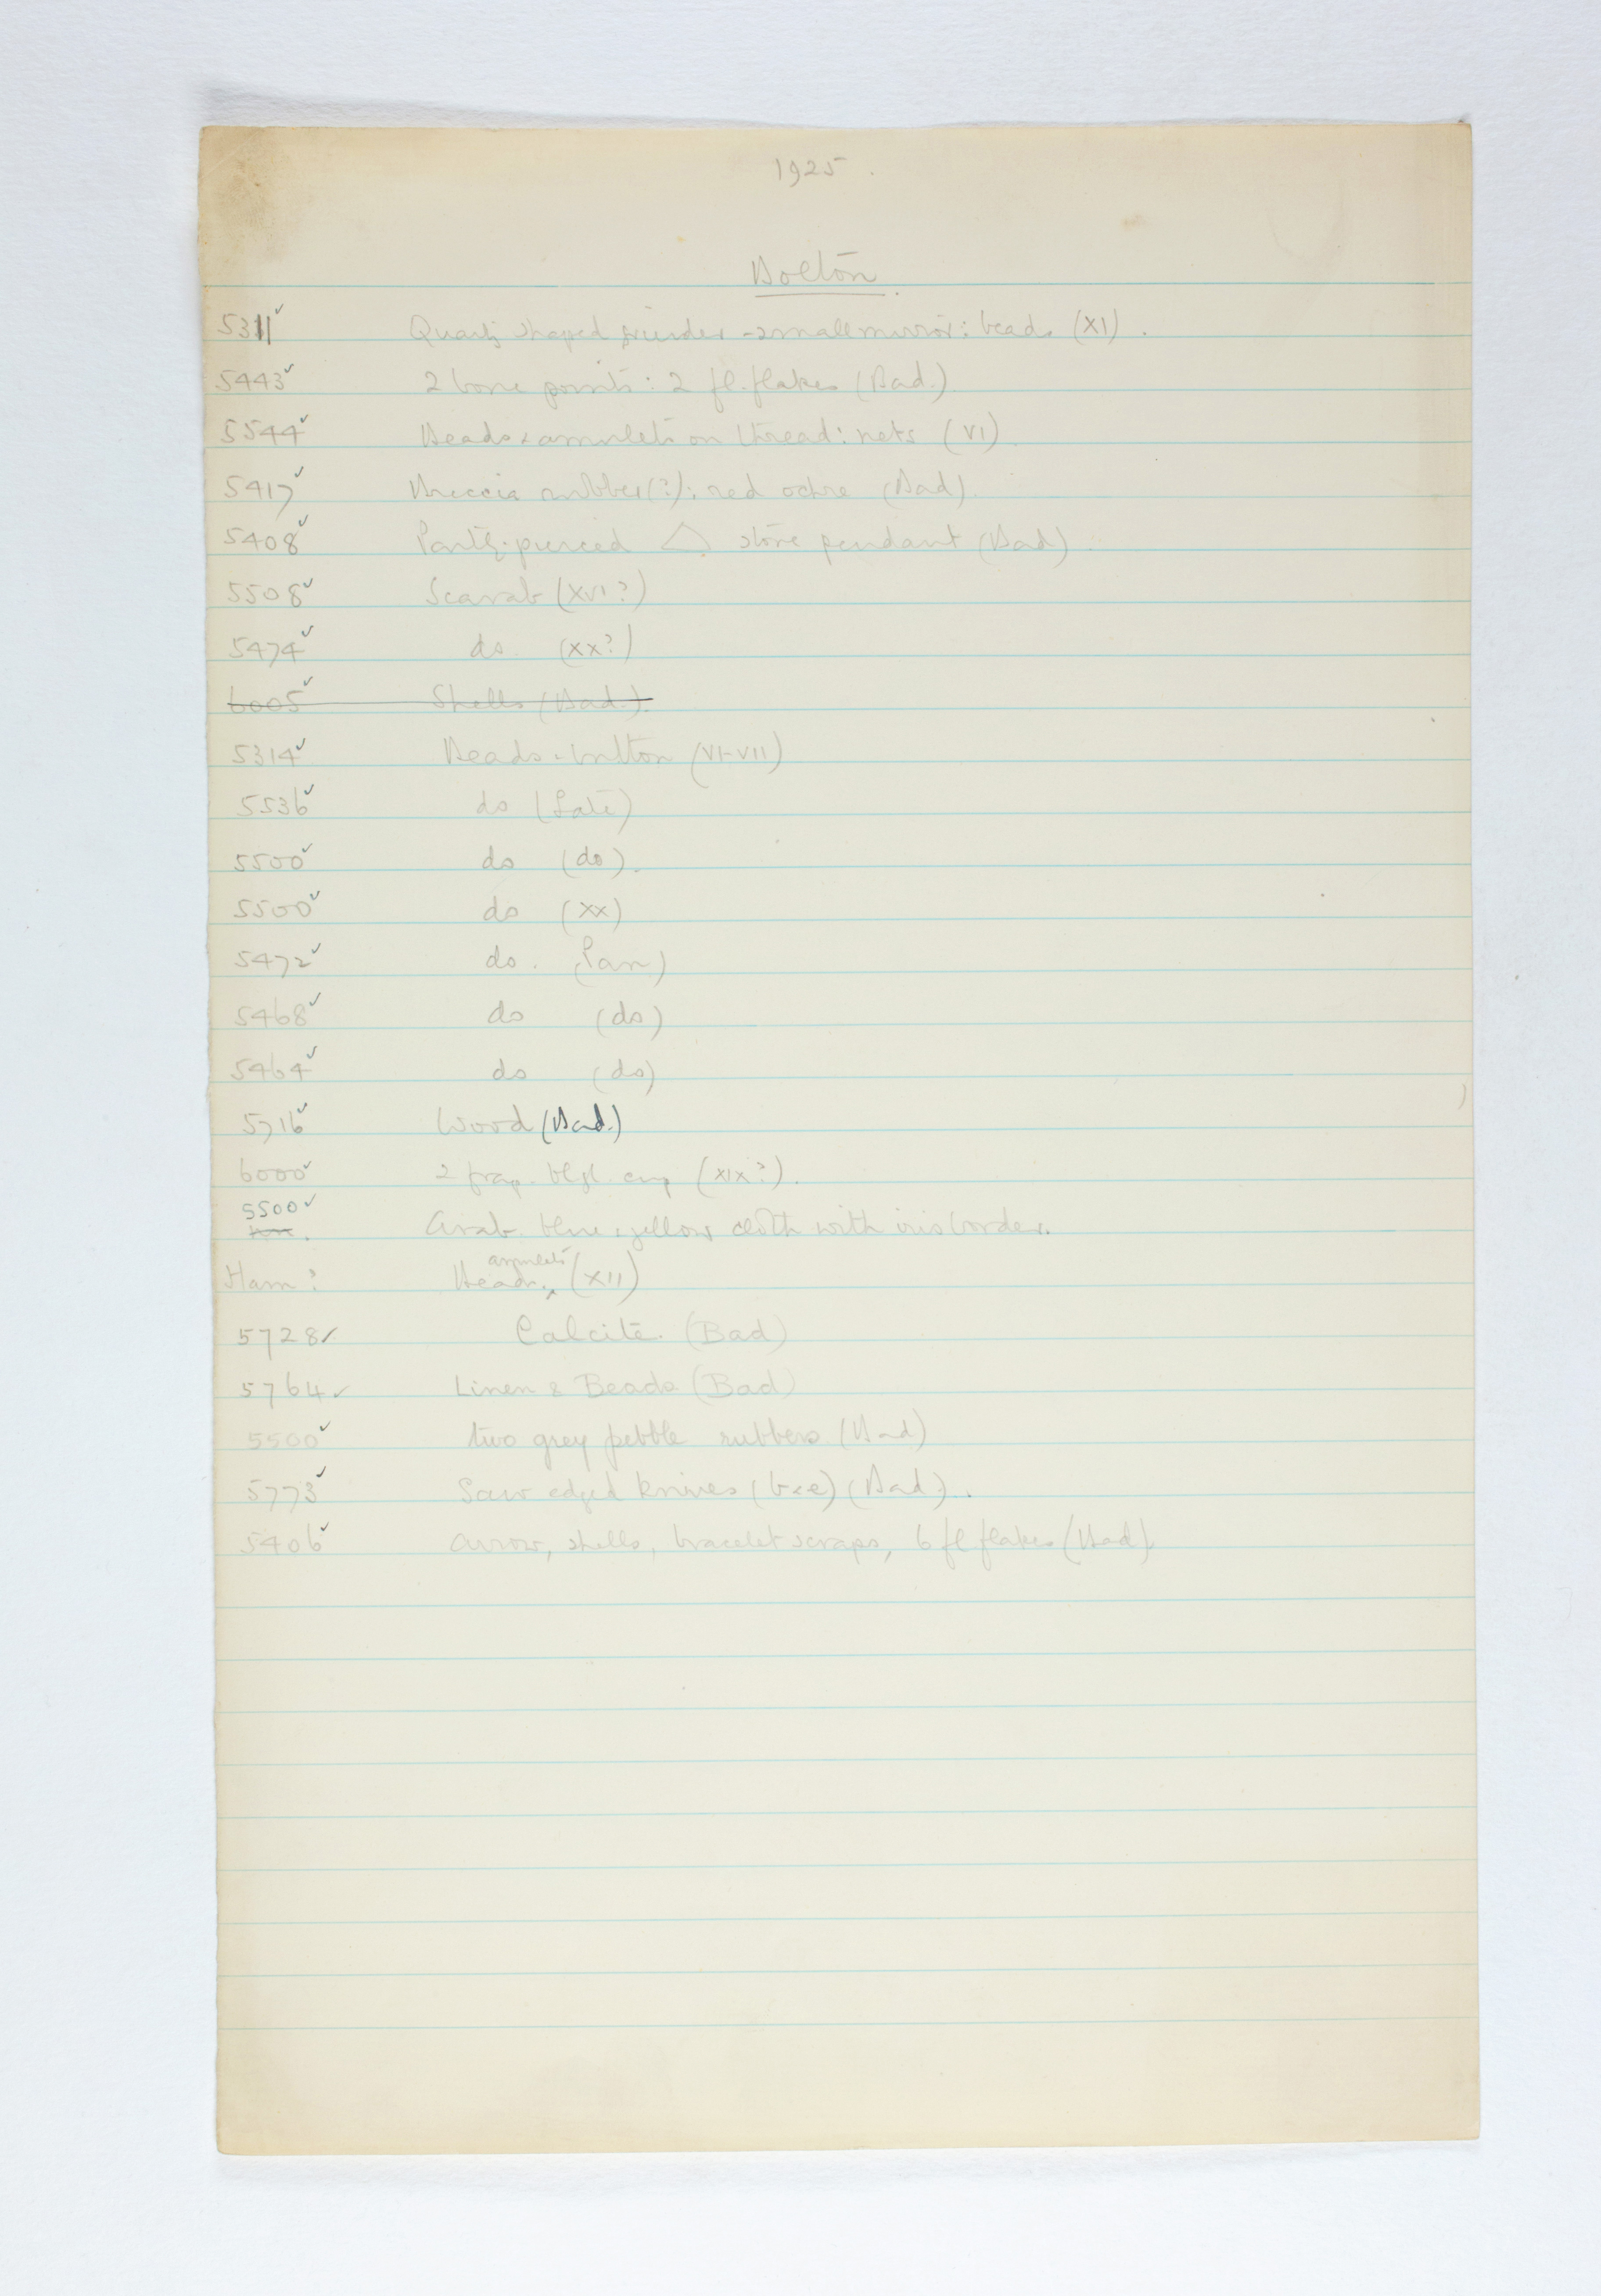 1925.
Bolton.
5311✓ Quartz shaped grinder - small mirror: beads (XI).
5443✓ 2 bone points: 2 fl. flakes (Bad.).
5544✓ Beads & amulets on thread: nets (VI).
5417✓ Breccia rubber (?): red ochre (Bad).
5408✓ Partly-pierced △ stone pendant (Bad).
5508✓ Scarab (XVI?)
5474✓ do. (XX?)
6005✓ Shells (Bad.).
5314✓ Beads & button (VI-VII)
5536✓ do (Late)
5500✓ do (do).
5500✓ do (XX)
5472✓ do. (Pan)
5468✓ do (do)
5464✓ do (do)
5716✓ Wood (Bad.)
6000✓ 2 frag. bl. gl. cup (XIX?).
5500✓ Arab. blue & yellow cloth with iris border.
Ham? Beads, amulets (XII)
5728✓ Calcite. (Bad)
5764✓ Linen & Beads (Bad)
5500✓ two grey pebble rubbers (Bad)
5773✓ Saw edged knives (b & e) (Bad).
5406✓ Arrow, shells, bracelet scraps, 6 fl flakes (Bad)